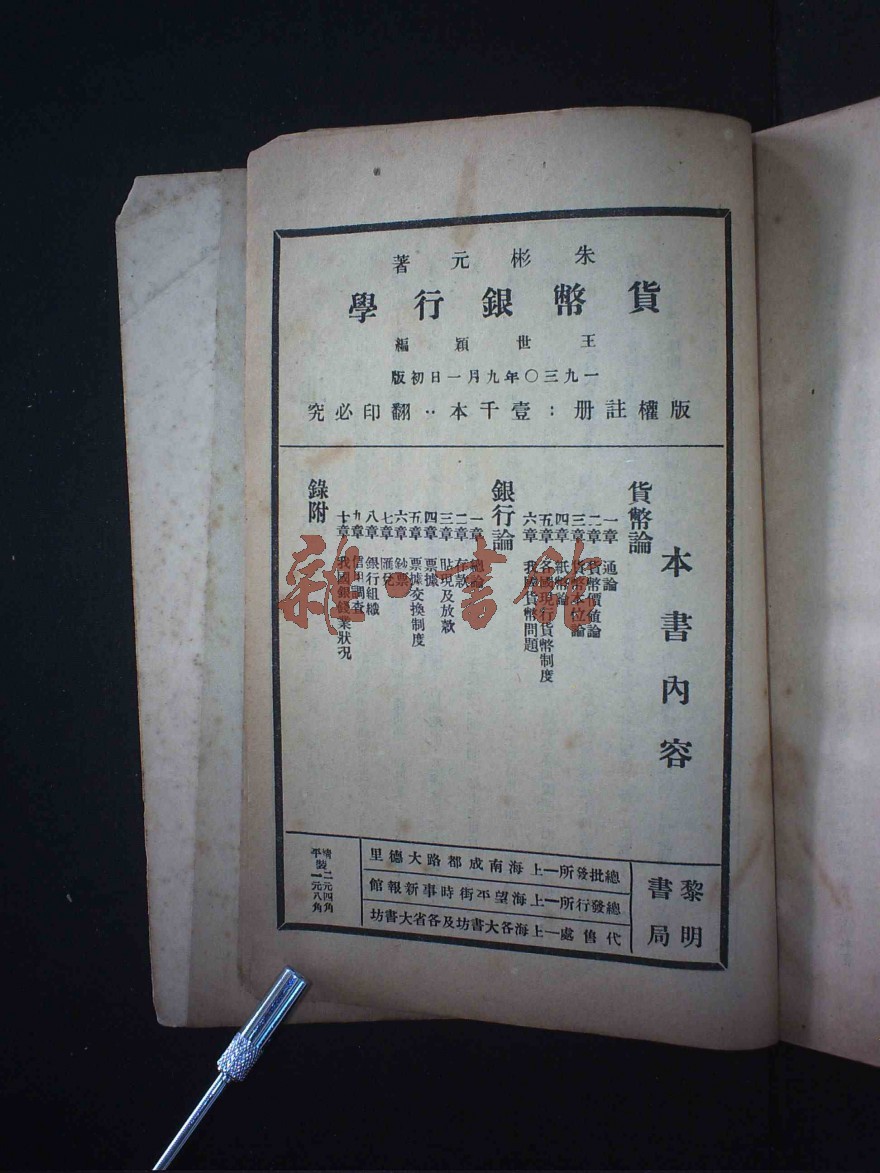 朱彬元著
貨幣銀行學
王世穎編
一九三〇年九月一日初版
版權註册：壹千本：翻印必究
本書內容
貨幣論
一章 通論
二章 貨幣價值論
三章 貨幣本位論
四章 紙幣論
五章 各國現行貨幣制度
六章 我國貨幣問題
銀行論
一章 總論
二章 存款
三章 貼現及放款
四章 票據
五章 票據交換制度
六章 鈔票
七章 匯兌
八章 銀行組織
九章 信用調查
十章 我國銀錢業狀況
附錄
黎明書局
總批發所—上海南成都路大德里
總發行所—上海望平街時事新報館
代售處—上海各大書坊及各省大書坊
精裝二元四角
平裝一元八角
雜·書館